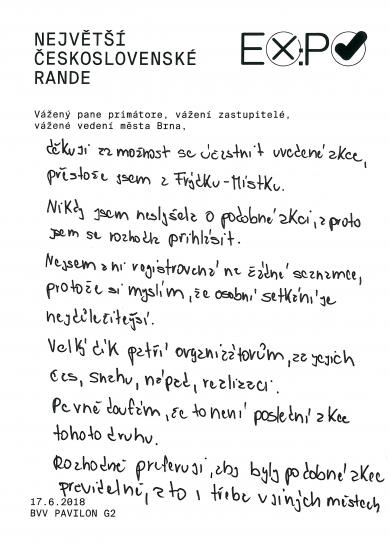 NEJVĚTŠÍ
ČESKOSLOVENSKÉ
RANDE
EX:PO
Vážený pane primátore, vážení zastupitelé,
vážené vedení města Brna,
děkuji za možnost se účastnit uvedené akce,
přestože jsem z Frýdku-Místku.
Nikdy jsem neslyšela o podobné akci, a proto
jsem se rozhodla přihlásit.
Nejsem ani registrovaná na žádné seznamce,
protože si myslím, že osobní setkání je
nejdůležitější.
Velký dík patří organizátorům, za jejich
čas, snahu, nápad, realizaci.
Pevně doufám, že to není poslední akce
tohoto druhu.
Rozhodně preferuji, aby byly podobné akce
pravidelné, a to i třeba v jiných městech
17.6.2018
BVV PAVILON G2